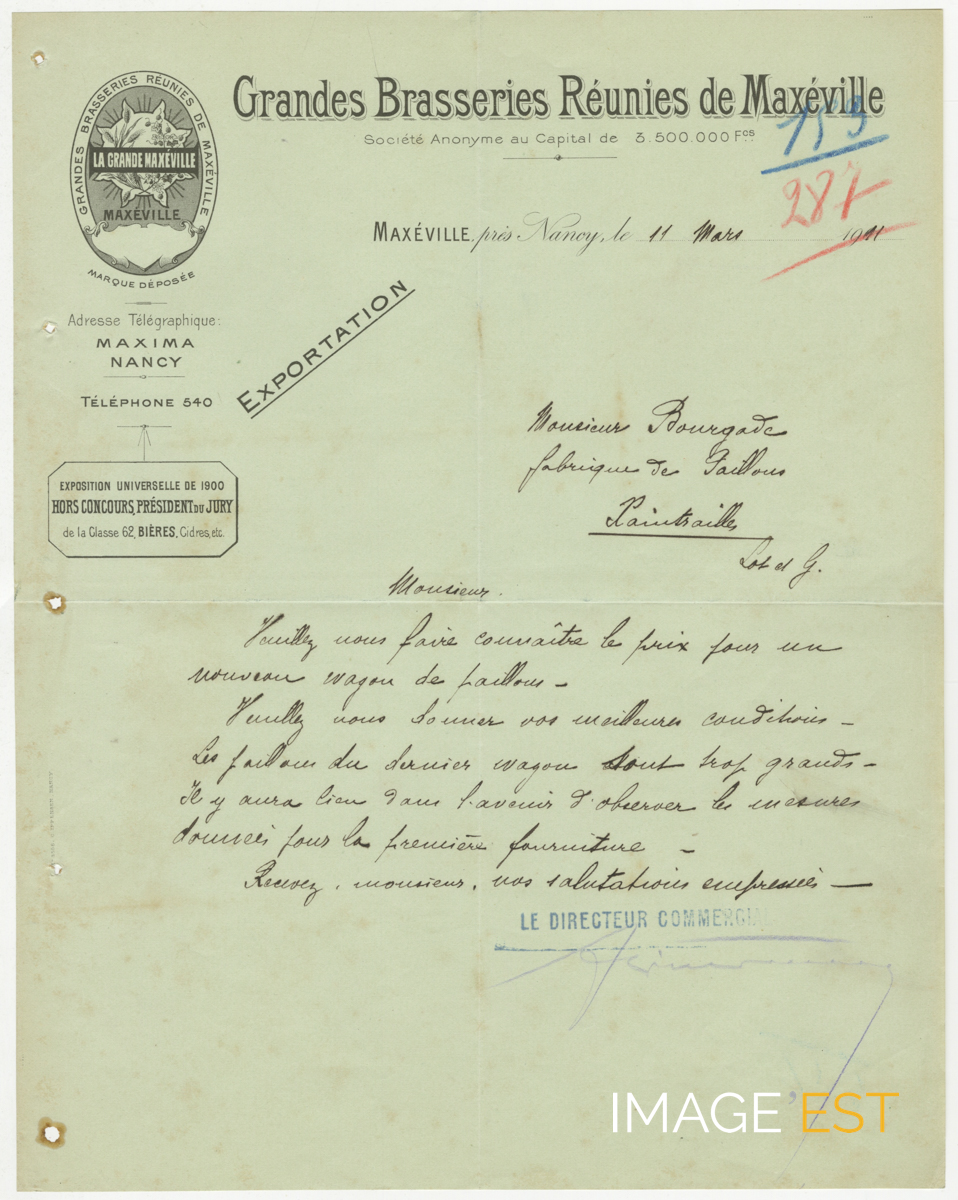 Grandes Brasseries Réunies de Maxéville
Société Anonyme au Capital de 3.500.000 Fcs
159
287
GRANDES BRASSERIES RÉUNIES DE MAXÉVILLE
LA GRANDE MAXÉVILLE
MAXÉVILLE
MARQUE DÉPOSÉE
MAXÉVILLE, près Nancy, le 11 Mars 1911
Adresse Télégraphique:
MAXIMA
NANCY
TÉLÉPHONE 540
EXPORTATION
EXPOSITION UNIVERSELLE DE 1900
HORS CONCOURS, PRÉSIDENT DU JURY
de la Classe 62, BIÈRES, Cidres, etc.
Monsieur Bourgade
fabrique de Paillons
Xaintrailles
Lot et G.
Monsieur.
Veuillez nous faire connaître le prix pour un
nouveau wagon de paillons –
Veuillez nous donner vos meilleures conditions –
Les paillons du dernier wagon sont trop grands –
Il y aura lieu dans l'avenir d'observer les mesures
données pour la première fourniture –
Recevez, monsieur, nos salutations empressées –
LE DIRECTEUR COMMERCIAL
IMAGE EST